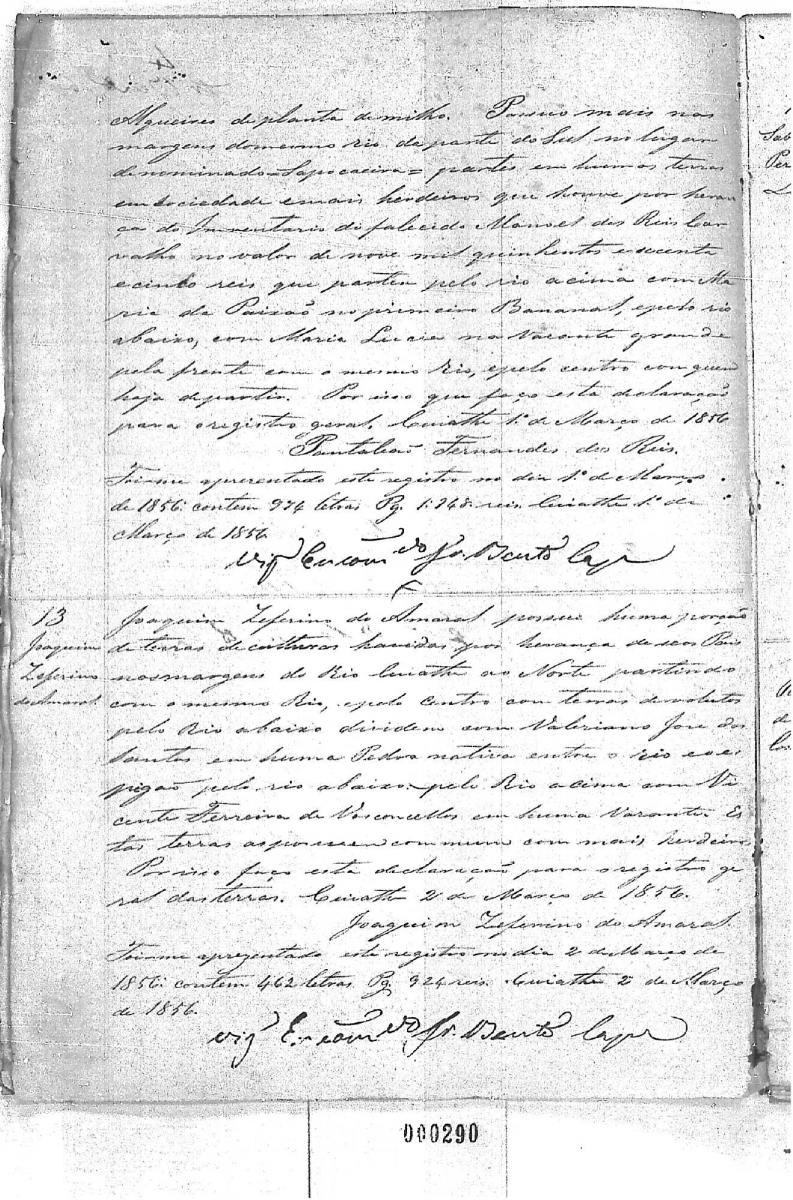 Alqueires de planta de milho. Possuo mais nas
margens do mesmo rio da parte do Sul no lugar
denominado = Sapocaeira = partes em humas terras
em sociedade e mais herdeiros que houve por heran
ça do Inventario do falecido Manoel dos Reis Car
valho no valor de nove mil quinhentos e secenta
e cinco reis que partem pelo rio acima com Ma
ria da Paixão no primeiro Bananal, e pelo rio
abaixo, com Maria Lucia na Vacante grande
pela frente com o mesmo Rio, e pelo centro com quem
haja de partir. Por isso que faço esta declaração
para o registro geral. Cuiathe 1º de Março de 1856
Pantaleão Fernandes dos Reis.
Foi-me aprezentado este registro no dia 1º de Março
de 1856: contem 974 letras Pg. 1:948 reis. Cuiathe 1º de
Março de 1856
Vigº Encomdo Fr. Bento
13
Joaquim
Zeferino
do Amaral
Joaquim Zeferino do Amaral possue huma porção
de terras de culturas havidas por herança de seos Pais
nas margens do Rio Cuiathe ao Norte partindo
com o mesmo Rio, e pelo centro com terras devolutas
pelo Rio abaixo dividem com Valeriano Jose dos
Santos em huma Pedra nativa entre o rio e o es
pigão pelo rio abaixo: pelo Rio acima com Vi
cente Ferreira de Vasconcellos em huma Varante. Es
tas terras as possue em commum com mais herdeiros
Por isso faço esta declaração para o registro ge
ral das terras. Cuiathe 2 de Março de 1856.
Joaquim Zeferino do Amaral.
Foi-me aprezentado este registro no dia 2 de Março de
1856: contem 462 letras Pg. 924 reis. Cuiathe 2 de Março
de 1856.
Vigº Encomdo Fr. Bento
000290